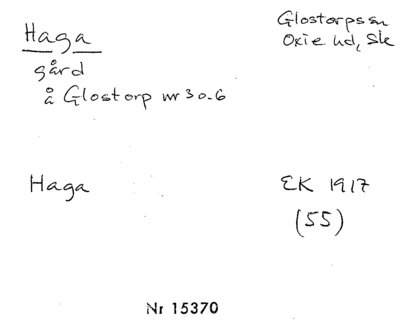 Haga
Glostorps sn
Oxie hd, Sk
gård
å Glostorp nr 30.6
Haga
EK 1917
(55)
Nr 15370